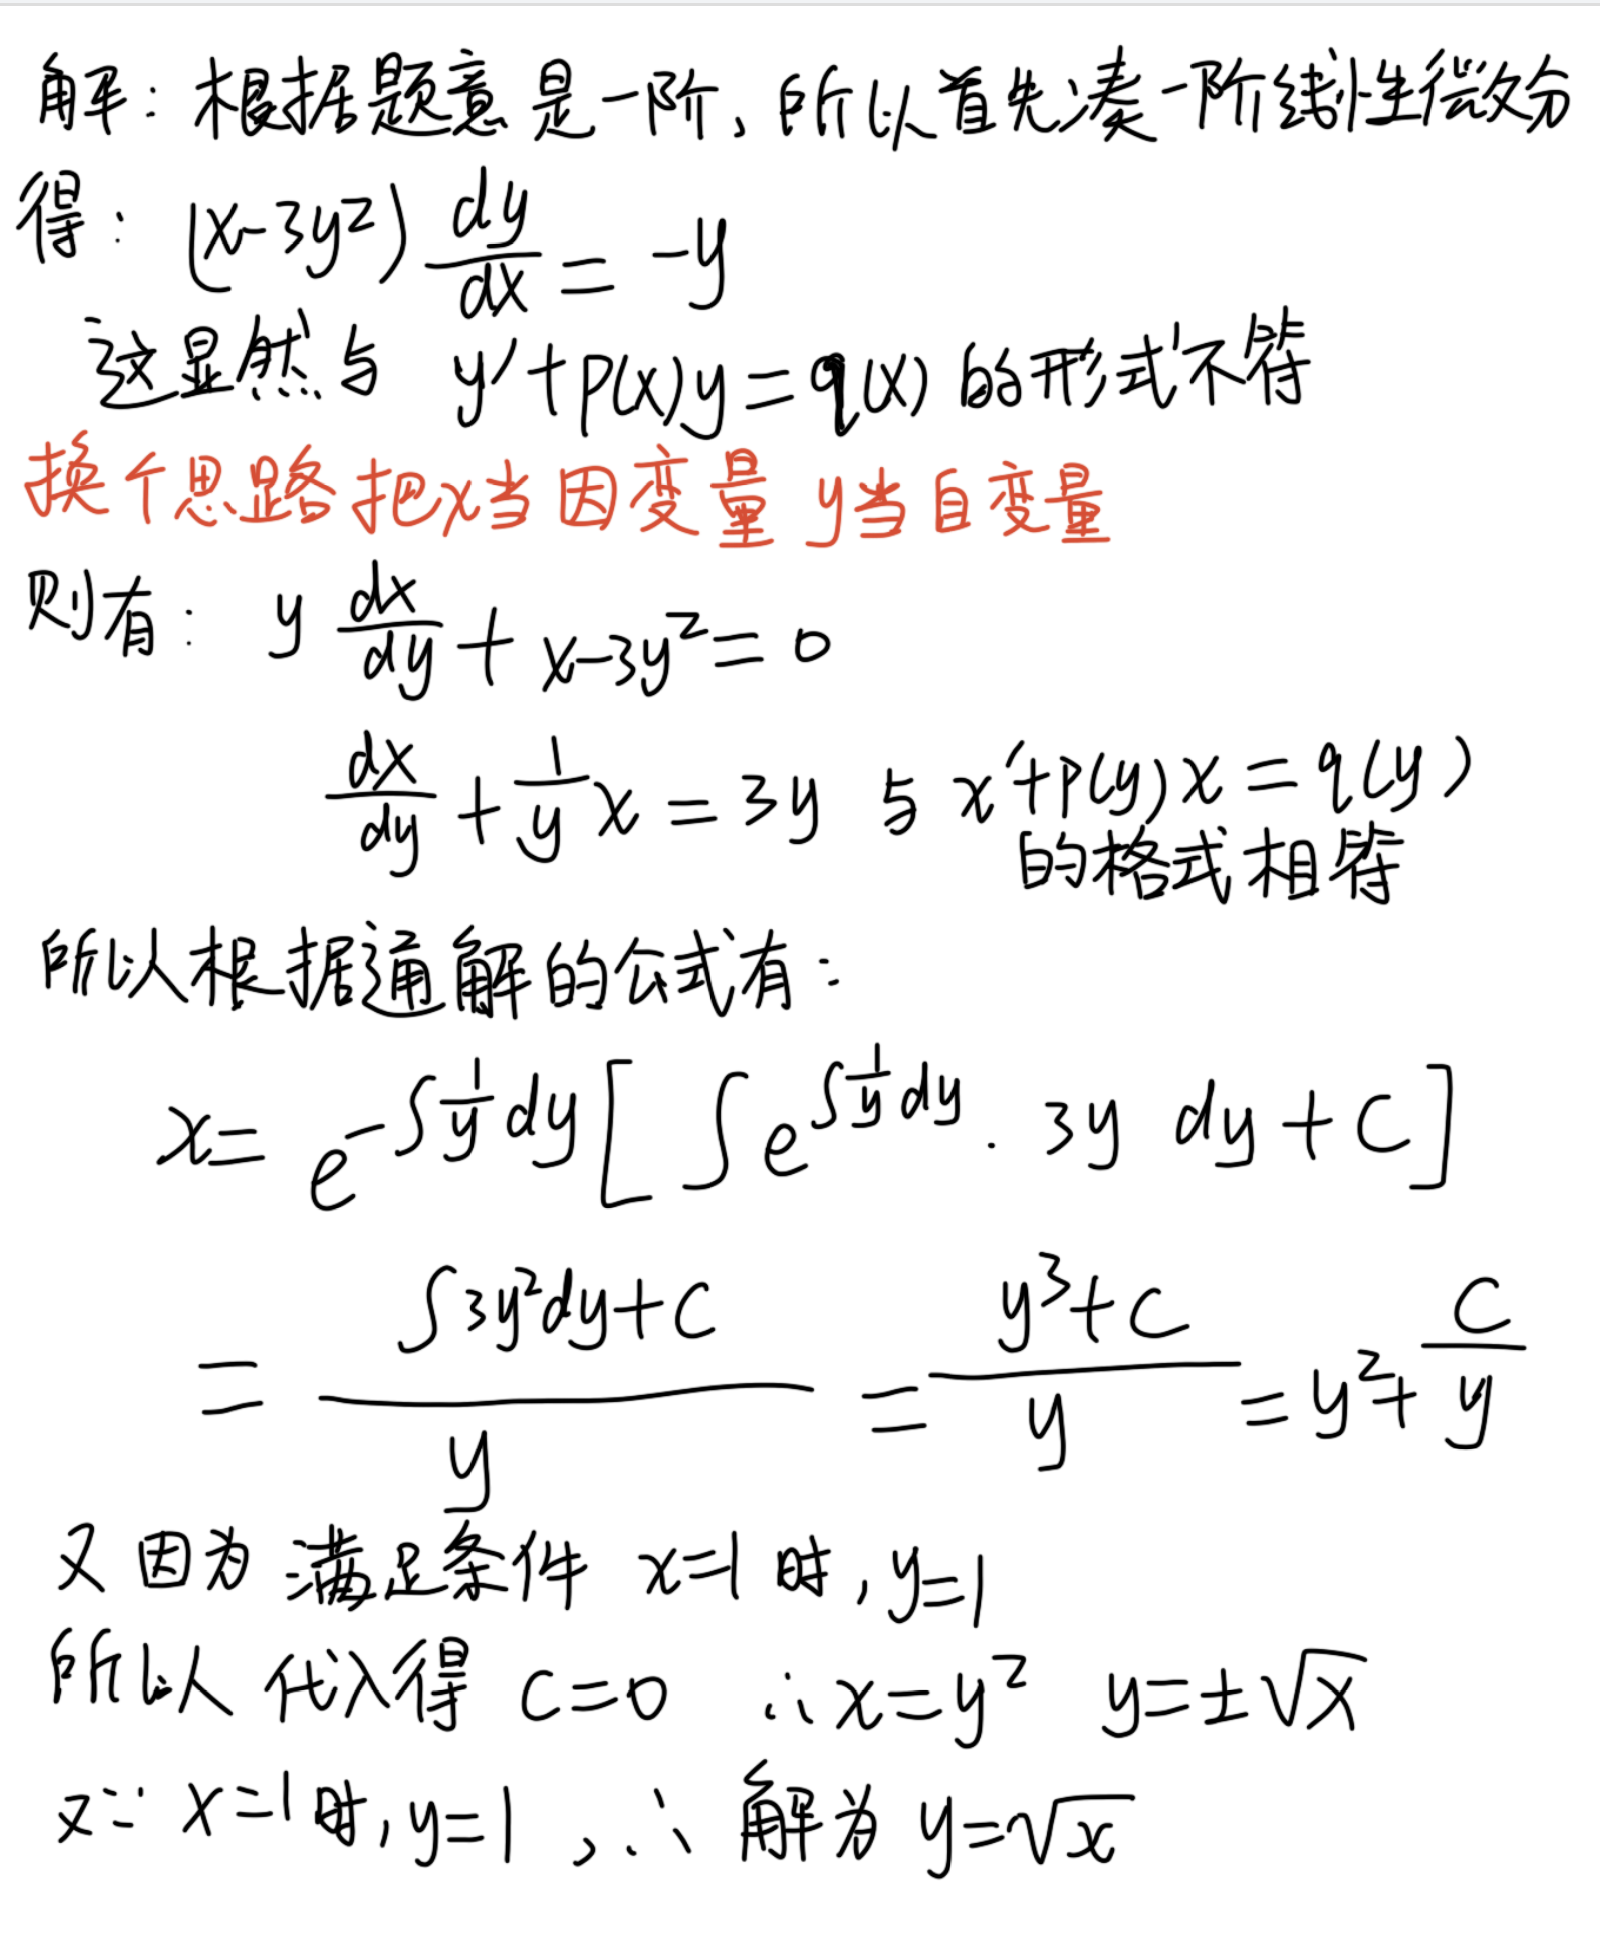 解：根据题意是一阶，所以首先凑一阶线性微分
得：(x-3y²) dy/dx = -y
这显然与 y'+p(x)y=q(x) 的形式不符
换个思路把x当因变量 y当自变量
则有：y dx/dy + x-3y²=0
dx/dy + 1/y x = 3y 与 x'+p(y)x=q(y)
的格式相符
所以根据通解的公式有：
x= e^(-∫1/y dy) [ ∫ e^(∫1/y dy) · 3y dy + C ]
= (∫3y²dy+C)/y = (y³+C)/y = y²+ C/y
又因为满足条件 x=1时,y=1
所以代入得 C=0 ∴x=y² y=±√x
又∵x=1时,y=1,∴解为y=√x